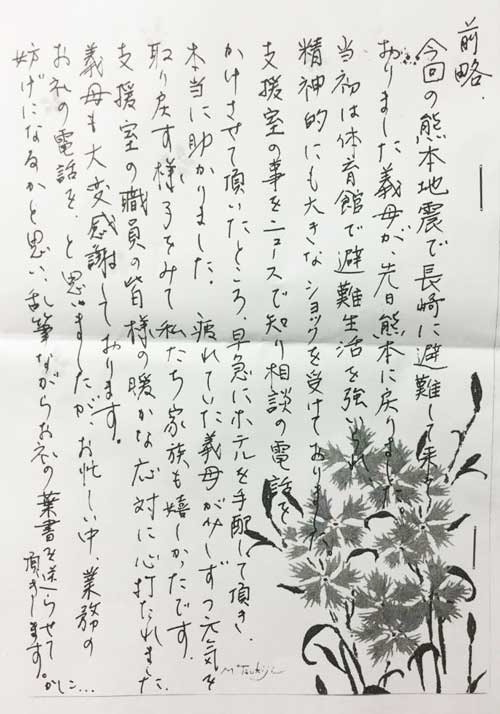 前略.
今回の熊本地震で長崎に避難して来て
おりました義母が、先日熊本に戻りました。
当初は体育館で避難生活を強いられ、
精神的にも大きなショックを受けておりました。
支援室の事をニュースで知り相談の電話を
かけさせて頂いたところ、早急にホテルを手配して頂き、
本当に助かりました。疲れていた義母が少しずつ元気を
取り戻す様子をみて私たち家族も嬉しかったです.
支援室の職員の皆様の暖かな応対に心打たれました.
義母も大変感謝しております。
お礼の電話を、と思いましたが、お忙しい中、業務の
妨げになるかと思い、乱筆ながらお礼の葉書を送らせて
頂きします。かしこ…
M. Tsukiji